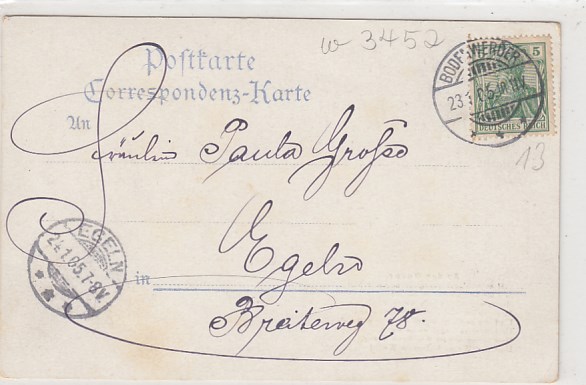 w 3452
Postkarte
Correspondenz-Karte
BODENWERDER
23.1.05
5
DEUTSCHES REICH
13
An
Fräulein Paula Große
EGELN
24.1.05.7-8V.
in Egeln
Breiteweg 78.